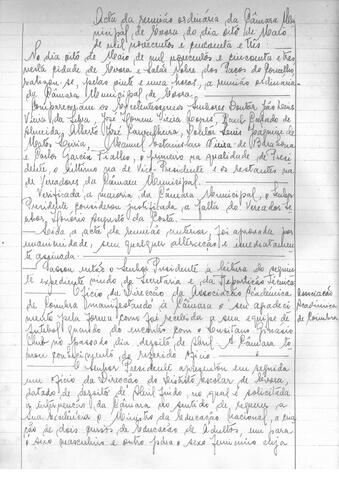 Acta da reunião ordinária da Câmara Mu-
nicipal de Évora do dia oito de Maio
de mil novecentos e cincoenta e três:
No dia oito de Maio de mil novecentos e cincoenta e três
nesta cidade de Évora e Salão Nobre dos Paços do Concelho
realizou-se, pelas vinte e uma horas, a reunião ordinária
da Câmara Municipal de Évora.
Compareceram os Excelentíssimos Senhores Doutor João Luís
Vieira da Silva, José Homem Vieira Lopes, Raul Calado de
Almeida, Alberto José, Doutor Luís de
Matos, Manuel Estanislau Vieira de Barahona
e Carlos Garcia Fialho, o primeiro na qualidade de Presi-
dente, o último na de Vice-Presidente e os restantes na
de Vereadores da Câmara Municipal.
Verificada a maioria da Câmara Municipal, o Senhor
Presidente considerou justificada a falta do Vereador Se-
nhor Honório Augusto da Costa.
Lida a acta da reunião anterior, foi aprovada por
unanimidade, sem qualquer alteração e imediatamen-
te assinada.
Passou então o Senhor Presidente à leitura do seguin-
te expediente vindo da Secretaria e da Repartição Técnica
Ofício da Direcção da Associação Académica
Associação
Académica
de Coimbra
de Coimbra manifestando à Câmara o seu agradeci-
mento pela forma como foi recebida a sua equipa de
futebol quando do encontro com o Lusitano Ginásio
Club no passado dia dezoito de Abril. A Câmara to-
mou conhecimento do referido ofício.
O Senhor Presidente apresentou em seguida
um ofício da Direcção do Distrito Escolar de Évora,
datado de dezoito de Abril findo, no qual é solicitada
a intervenção da Câmara no sentido de requerer a
sua Excelência o Ministro da Educação Nacional, a cria-
ção de dois cursos de educação de adultos, um para
o sexo masculino e outro para o sexo feminino cuja